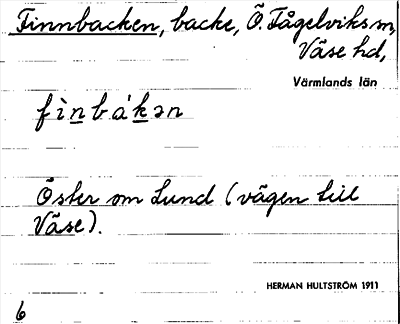 Finnbacken, backe, Ö. Fågelviks sn,
Väse hd,
Värmlands län
fìnbákən
Öster om Lund (vägen till
Väse).
HERMAN HULTSTRÖM 1911
6